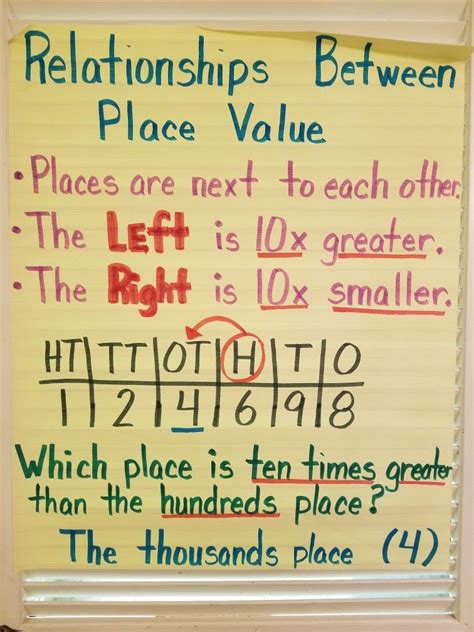 Relationships Between
Place Value
• Places are next to each other.
• The Left is 10x greater.
• The Right is 10x smaller.
HT | TT | OT | H | T | O
1 | 2 | 4 | 6 | 9 | 8
Which place is ten times greater
than the hundreds place?
The thousands place (4)